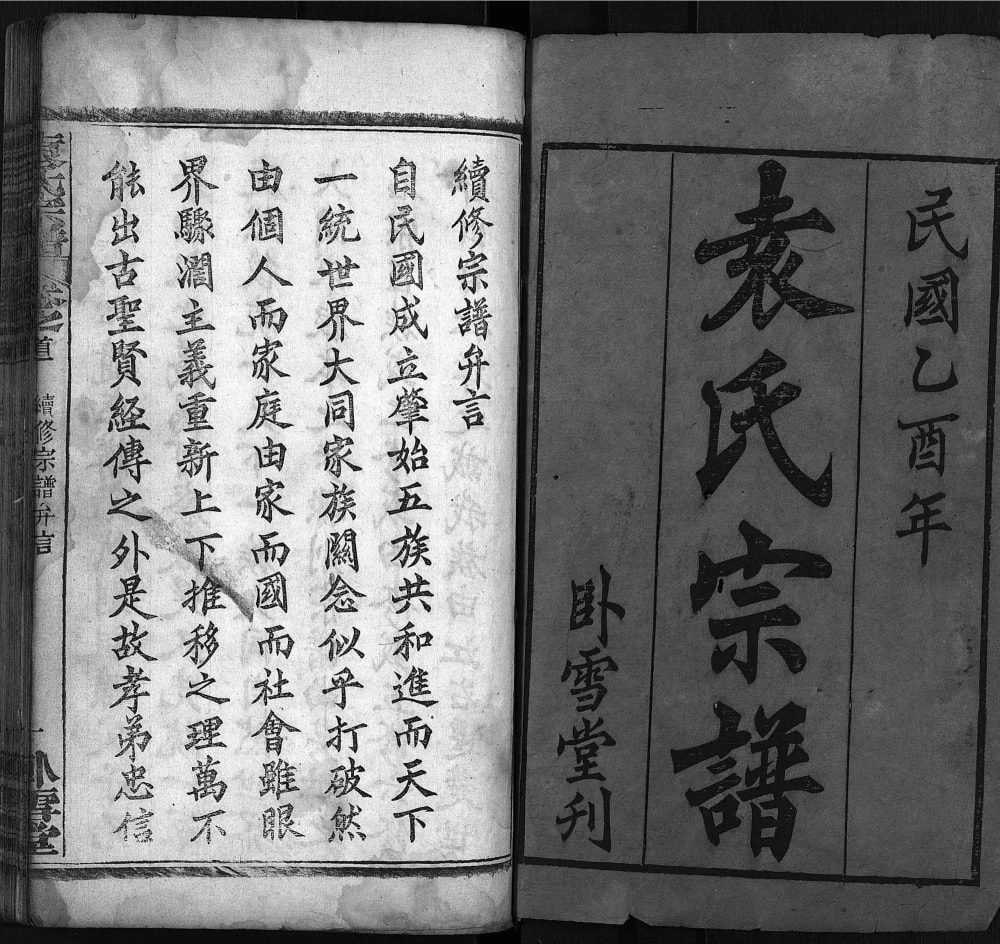 民國乙酉年
袁氏宗譜
臥雪堂刋
續修宗譜弁言
自民國成立肇始五族共和進而天下
一統世界大同家族關念似乎打破然
由個人而家庭由家而國而社會雖眼
界驟濶主義重新上下推移之理萬不
能出古聖賢經傳之外是故孝弟忠信
袁氏宗譜 卷之首 續修宗譜弁言 一 臥雪堂